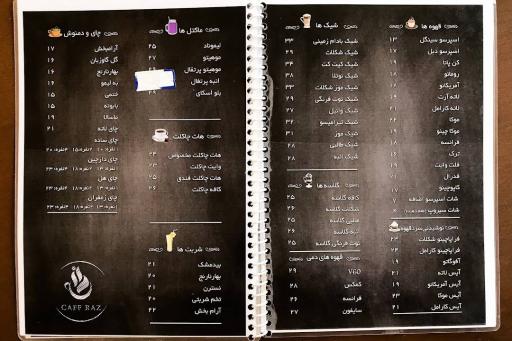 قهوه ها
اسپرسو سینگل ۱۳
اسپرسو دبل ۱۷
کن پانا ۱۹
رومانو ۱۸
آمریکانو ۱۸
لاته آرت ۲۰
لاته کارامل ۲۱
موکا ۲۲
موکا چینو ۱۹
فرانسه ۱۸
ترک ۱۶
فلت وایت ۱۹
فدرال ۲۱
کاپوچینو ۱۷
شات اسپرسو اضافه ۷
شات سیروپ
نوشیدنی سرد قهوه
فراپاچینو شکلات ۲۳
فراپاچینو کارامل ۲۲
آفوگاتو ۱۹
آیس لاته ۲۱
آیس آمریکانو ۱۹
آیس موکا ۲۳
آیس کارامل ۲۱
شیک ها
شیک بادام زمینی ۳۳
شیک شکلات ۲۹
شیک کیت کت ۳۴
شیک نوتلا ۳۸
شیک موز شکلات ۳۳
شیک توت فرنگی ۲۹
شیک وانیل ۲۷
شیک تیرامیسو ۳۲
شیک موز ۳۱
شیک طالبی ۲۸
شیک انبه ۲۸
گلاسه ها
کافه گلاسه ۲۵
شکلات گلاسه ۲۶
طالبی گلاسه ۲۵
انبه گلاسه ۲۶
توت فرنگی گلاسه ۲۵
قهوه های دمی
V60 ۲۹
کمکس ۲۸
فرانسه ۲۶
سایفون ۲۷
ماکتل ها
لیموناد ۲۵
موهیتو ۲۷
موهیتو پرتقال
انبه پرتقال
بلو اسکای ۲۸
هات چاکلت
هات چاکلت مخصوص ۲۴
وایت چاکلت ۲۳
هات چاکلت فندق ۲۵
کافه چاکلت ۲۶
شربت ها
بیدمشک ۲۱
بهارنارنج ۲۰
نسترن ۲۱
تخم شربتی ۲۰
آرام بخش ۲۲
چای و دمنوش
آرامبخش ۱۷
گل گاوزبان ۱۶
بهارنارنج ۱۶
به لیمو ۱۶
ختمی ۱۵
بابونه ۱۵
ماسالا ۱۹
چای لاته ۲۱
چای ساده
چای دارچین
چای هل
چای زعفران
CAFE RAZ